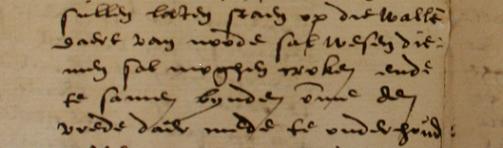 sullen laten staen op die walle
daert van noode sal wesen die
men sal moghen troken ende
te samen bynden om̄e den
vrede daer mede te onderhoud